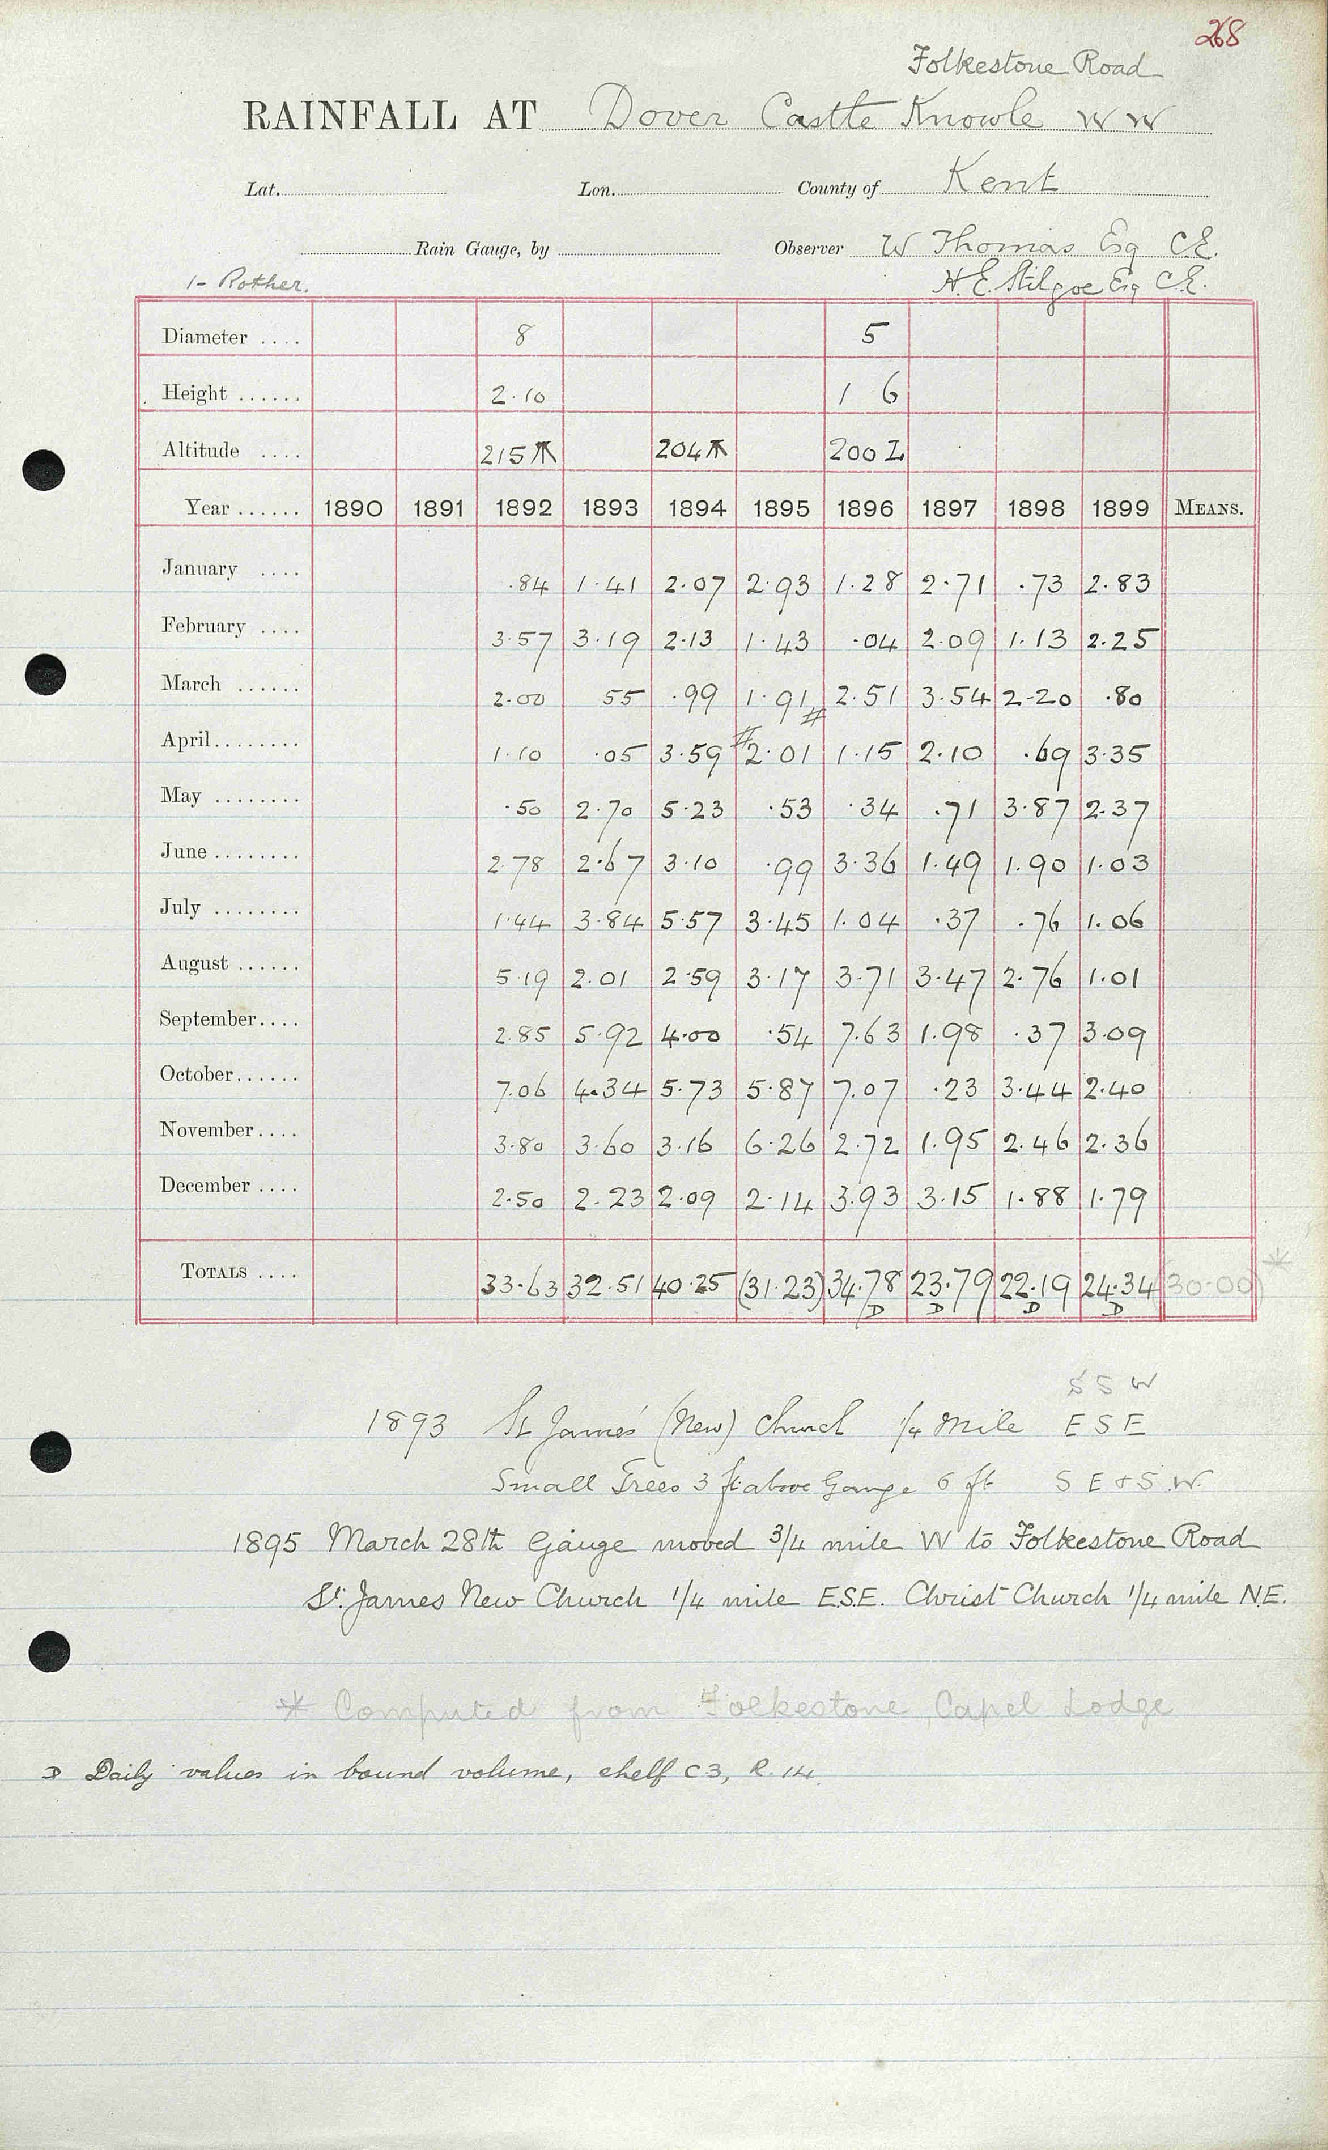 268
Folkestone Road
RAINFALL AT Dover Castle Knowle W W
Lat. Lon. County of Kent
Rain Gauge, by Observer W Thomas Esq C.E.
1- Rother. H. E. Stilgoe Esq C.E.
Diameter .... 8 5
Height ...... 2.10 1 6
Altitude .... 215 204 200 L
Year ...... 1890 1891 1892 1893 1894 1895 1896 1897 1898 1899 MEANS.
January .... .84 1.41 2.07 2.93 1.28 2.71 .73 2.83
February .... 3.57 3.19 2.13 1.43 .04 2.09 1.13 2.25
March ...... 2.00 55 .99 1.91 # 2.51 3.54 2-20 .80
April........ 1.10 .05 3.59 # 2.01 1.15 2.10 .69 3.35
May ........ .50 2.70 5.23 .53 .34 .71 3.87 2.37
June ........ 2.78 2.67 3.10 .99 3.36 1.49 1.90 1.03
July ........ 1.44 3.84 5.57 3.45 1.04 .37 .76 1.06
August ...... 5.19 2.01 2.59 3.17 3.71 3.47 2.76 1.01
September.... 2.85 5.92 4.00 .54 7.63 1.98 .37 3.09
October...... 7.06 4.34 5.73 5.87 7.07 .23 3.44 2.40
November.... 3.80 3.60 3.16 6.26 2.72 1.95 2.46 2.36
December .... 2.50 2.23 2.09 2.14 3.93 3.15 1.88 1.79
TOTALS .... 33.63 32.51 40.25 (31.23) 34.78 23.79 22.19 24.34 (30.00) *
D D D D
S S W
1893 St James' (New) Church 1/4 Mile E S E
Small Trees 3 ft above Gauge 6 ft S E & S.W.
1895 March 28th Gauge moved 3/4 mile W to Folkestone Road
St. James New Church 1/4 mile E.S.E. Christ Church 1/4 mile N.E.
* Computed from Folkestone, Capel Lodge
D Daily values in bound volume, shelf C3, R. 14.